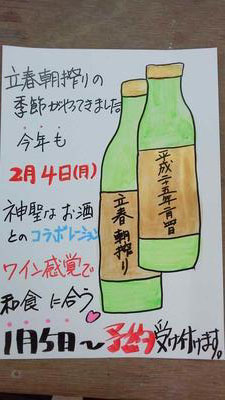 立春朝搾りの
季節がやってきました
今年も
2月4日(月)
神聖なお酒
とのコラボレーション
ワイン感覚で
和食に合う
1月5日〜予約受け付けます。
平成二十五年二月四日
立春朝搾り